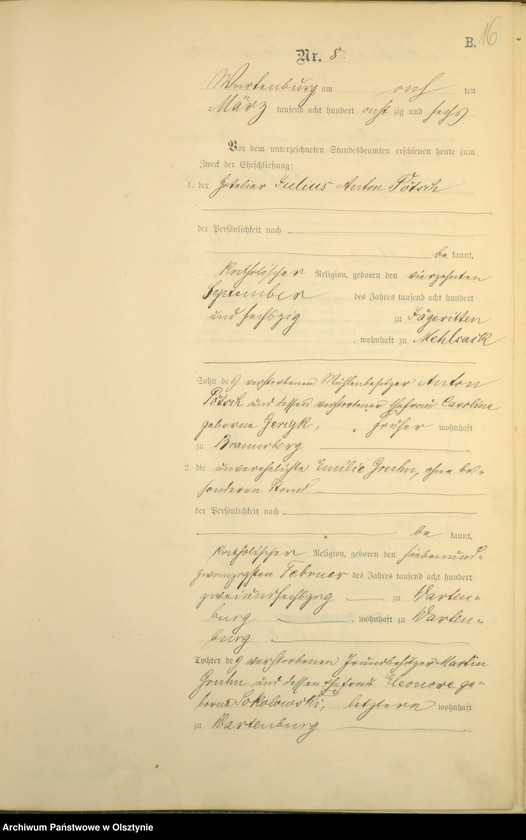 B. 16
Nr. 8.
Wartenburg am acht ten
März tausend acht hundert acht zig und sechs
Vor dem unterzeichneten Standesbeamten erschienen heute zum
Zweck der Eheschließung:
1. der Hotelier Julius Anton Pötsch
der Persönlichkeit nach
be kannt,
katholischer Religion, geboren den vierzehnten
September des Jahres tausend acht hundert
und sechszig zu Jägeritten
, wohnhaft zu Mehlsack
Sohn des verstorbenen Mühlenbesitzer Anton
Pötsch und dessen verstorbener Ehefrau Caroline
geborene , früher wohnhaft
zu Braunsberg
2. die unverehelichte Emilie Gruhn, ohne be-
sonderen Stand
der Persönlichkeit nach
be kannt,
katholischer Religion, geboren den siebenund-
zwanzigsten Februar des Jahres tausend acht hundert
zweiundsechszig zu Warten-
burg , wohnhaft zu Warten-
burg
Tochter des verstorbenen Grundbesitzer Martin
Gruhn und dessen Ehefrau Eleonore ge-
borne Sokolowski, letztere wohnhaft
zu Wartenburg
Archiwum Państwowe w Olsztynie